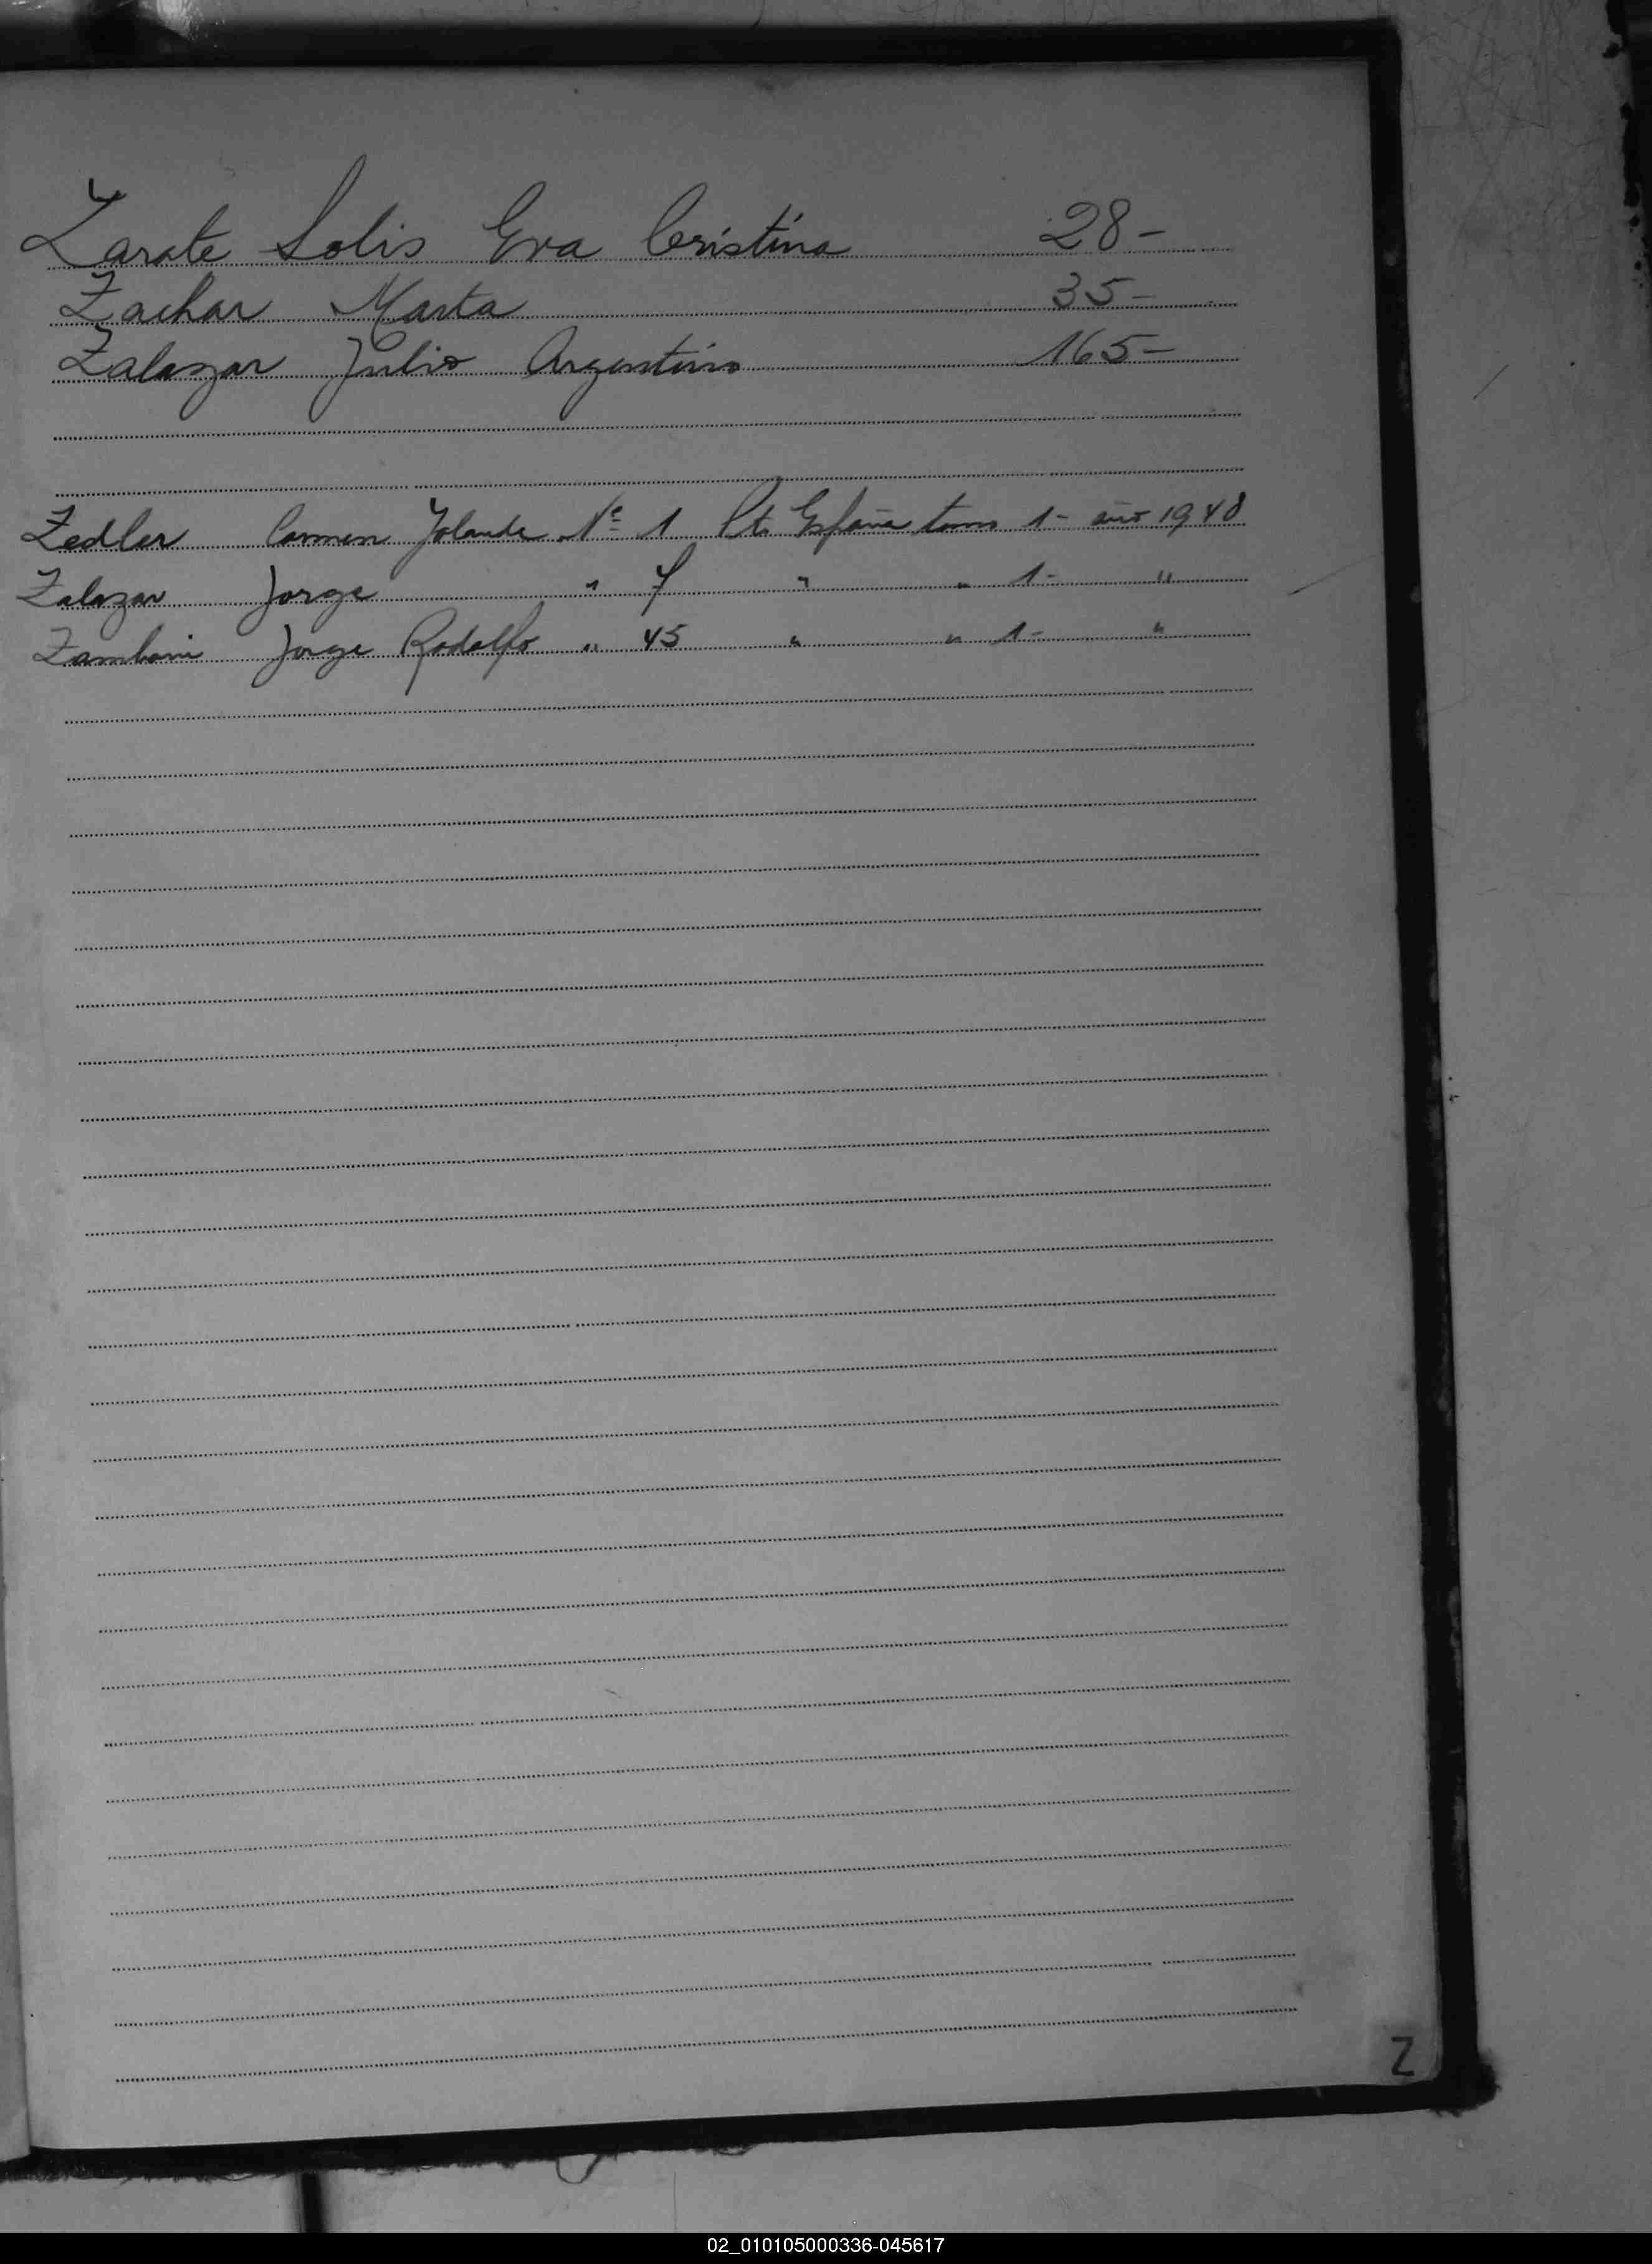 Zarate Solis Eva Cristina 28-
Zachar Marta 35-
Zalazar Julio Argentino 165-
Zedler Carmen Yolanda Nº 1 Pto España tomo 1- año 1948
Zalazar Jorge " 7 " " 1- "
Zamboni Jorge Rodolfo " 45 " " 1- "
Z
02_010105000336-045617